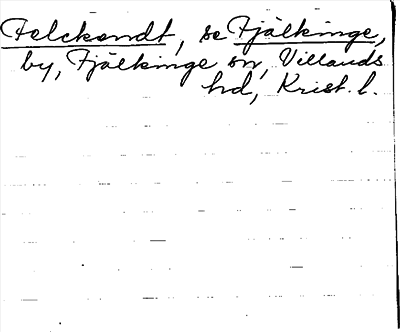 Felckendt, se Fjälkinge,
by, Fjälkinge sn, Villands
hd, Krist. l.